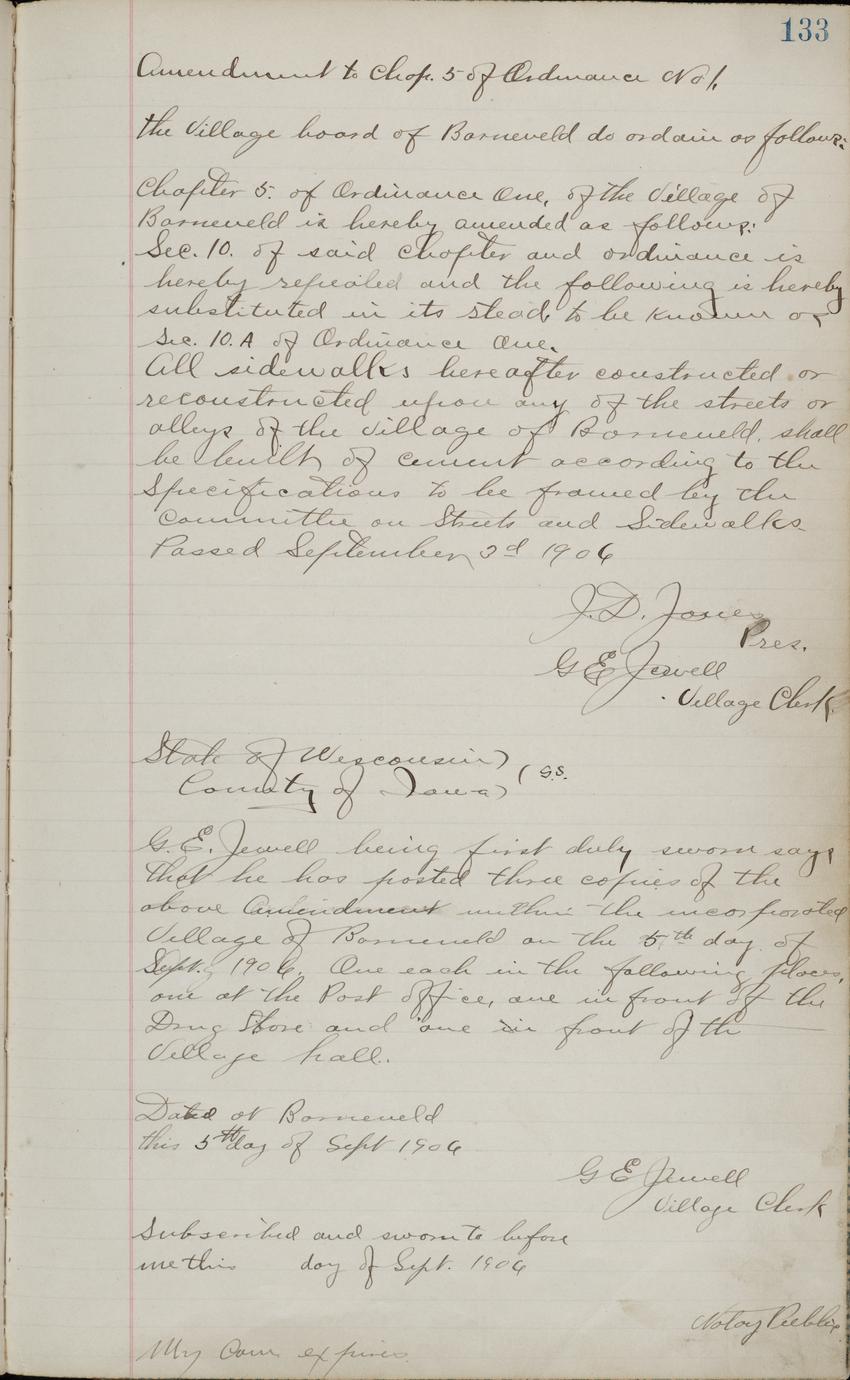 133
Amendment to Chap. 5 of Ordinance No 1.
the Village board of Barneveld do ordain as follows:
Chapter 5. of Ordinance One, of the Village of
Barneveld is hereby amended as follows:
Sec. 10. of said chapter and ordinance is
hereby repealed and the following is hereby
substituted in its stead, to be known as
Sec. 10.A of Ordinance One.
All sidewalks hereafter constructed or
reconstructed upon any of the streets or
alleys of the Village of Barneveld, shall
be built of cement according to the
Specifications to be framed by the
Committee on Streets and Sidewalks.
Passed September 3d 1906
J. D. Jones
Pres.
G E Jewell
Village Clerk
State of Wisconsin)
( ss.
County of Iowa)
G. E. Jewell being first duly sworn says
that he has posted three copies of the
above Amendment within the incorporated
Village of Barneveld on the 5th day of
Sept. 1906. One each in the following places,
one at the Post office, one in front of the
Drug Store and one in front of th
Village hall.
Dated at Barneveld
this 5th day of Sept 1906
G E Jewell
Village Clerk
Subscribed and sworn to before
me this day of Sept. 1906
Notoy Public
My Com expires